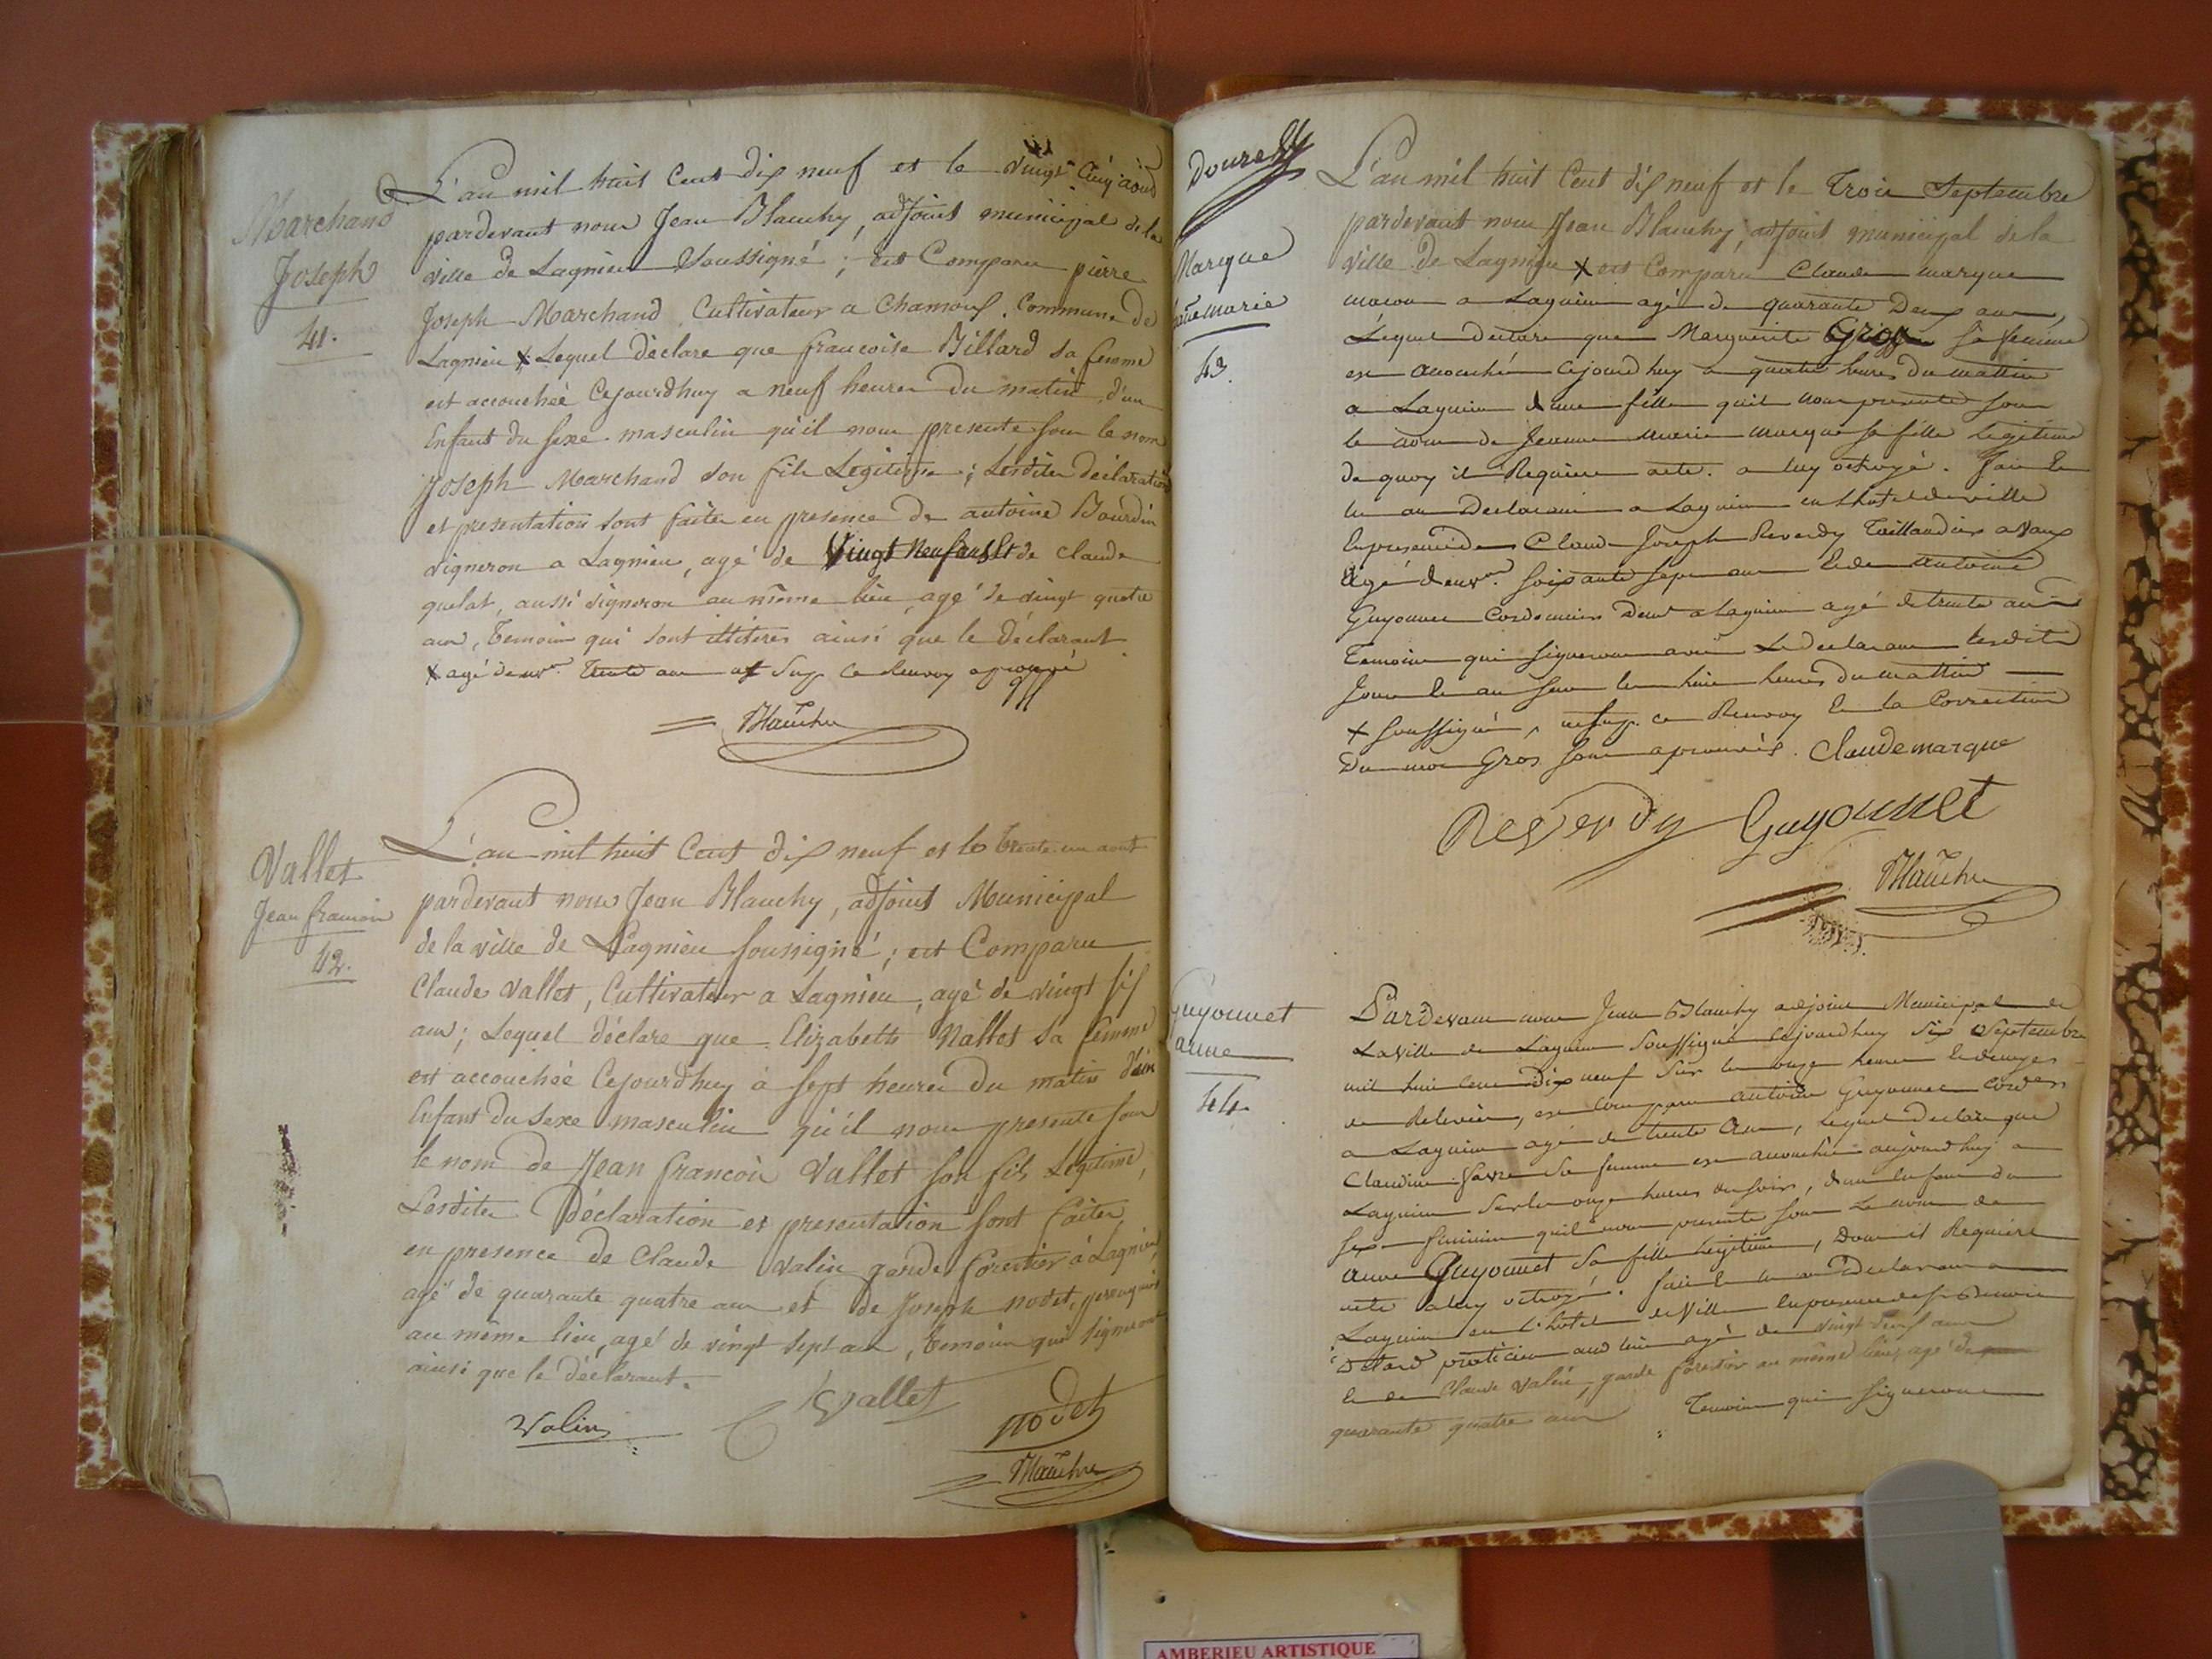 Marchand
Joseph
41.
L'an mil huit Cent dix neuf et le vingt Cinq août
pardevant nous Jean Blanchy, adjoint municipal de la
ville de Lagnieu Soussigné ; est Comparu pierre
Joseph Marchand Cultivateur a Chamoux. Commune de
Lagnieu x Lequel déclare que francoise Billard sa femme
est accouchée Cejourdhuy a neuf heures du matin, d'un
Enfant du sexe masculin qu'il nous presente sous le nom
Joseph Marchand son fils Legitime ; Lesdites déclaration
et presentation sont faites en presence de antoine Bourdin
vigneron a Lagnieu, agé de Vingt Neuf ans Et de claude
quelat, aussi vigneron au même lieu, agé de vingt quatre
ans, Temoins qui sont illiteres ainsi que le déclarant
x agé denvon Trente ans Ce Renvoy aprouvé
Blanchy
Vallet
Jean francois
42.
L'an mil huit Cent dix neuf et le trente un aout
pardevant nous Jean Blanchy, adjoint Municipal
de la ville de Lagnieu soussigné ; est Comparu
Claude Vallet, Cultivateur a Lagnieu, agé de vingt six
ans ; Lequel déclare que Elizabeth Nallet sa femme
est accouchée Cejourdhuy à sept heures du matin d'un
Enfant du sexe masculin qu'il nous presente sous
le nom de Jean francois Vallet son fils Legitime,
Lesdites Déclaration et presentation sont faites
en presence de Claude Valin garde forestier à Lagnieu,
agé de quarante quatre ans et de Joseph nodet, perruquier
au même lieu, agé de vingt sept ans, temoins qui signeront
ainsi que le déclarant.
Valin Vallet nodet
Blanchy
Douze
Marque
Jeanne marie
43.
L'an mil huit Cent dix neuf et le Trois Septembre
pardevant nous Jean Blanchy, adjoint municipal de la
ville de Lagnieu x est Comparu Claude marque
macon a Lagnieu agé de quarante Deux ans,
Lequel declare que Marguerite Gros sa femme
est accouchée Cejourdhuy a quatre heures du mattin
a Lagnieu d'une fille quil nous presente sous
le nom de Jeanne marie marque sa fille legitime
de quoy il Requiere acte. a luy octroyé. Fait et
lu au Declarant a Lagnieu en Lhotel de ville
En presence de Claude Joseph Reverdy Taillandier a Vaux
agé denvon soixante sept ans et de antoine
Guyonnet Cordonnier Demt a Lagnieu agé de trente ans
Temoins qui signeront avec Le declarant lesdits
Jour et an sur les huit heures du mattin
x soussigné, ce Renvoy Et la Correction
Du mot Gros sont aprouvés. Claude marque
Reverdy Guyonnet
Blanchy
Guyonnet
anne
44.
Pardevant nous Jean Blanchy adjoint Municipal de
La Ville de Lagnieu Soussigné Cejourdhuy Six Septembre
mil huit Cent Dix neuf Sur les onze heures
de Relevée, est Comparu antoine Guyonnet Cordon
a Lagnieu agé de trente ans, Lequel declare que
Claudine favre sa femme est accouchée aujourdhuy a
Lagnieu Sur les onze heures du soir, d'un Enfant du
sexe feminin quil nous presente sous Le nom de
anne Guyonnet sa fille Legitime, Dont il Requiere
acte a luy octroyé. fait et lu au Declarant a
Lagnieu en L'hotel de Ville En presence de Sr Benoit
praticien aud lieu agé de vingt Neuf ans
Et de Claude Valin, garde forestier au même lieu, agé de
quarante quatre ans Temoins qui signeront
AMBERIEU ARTISTIQUE